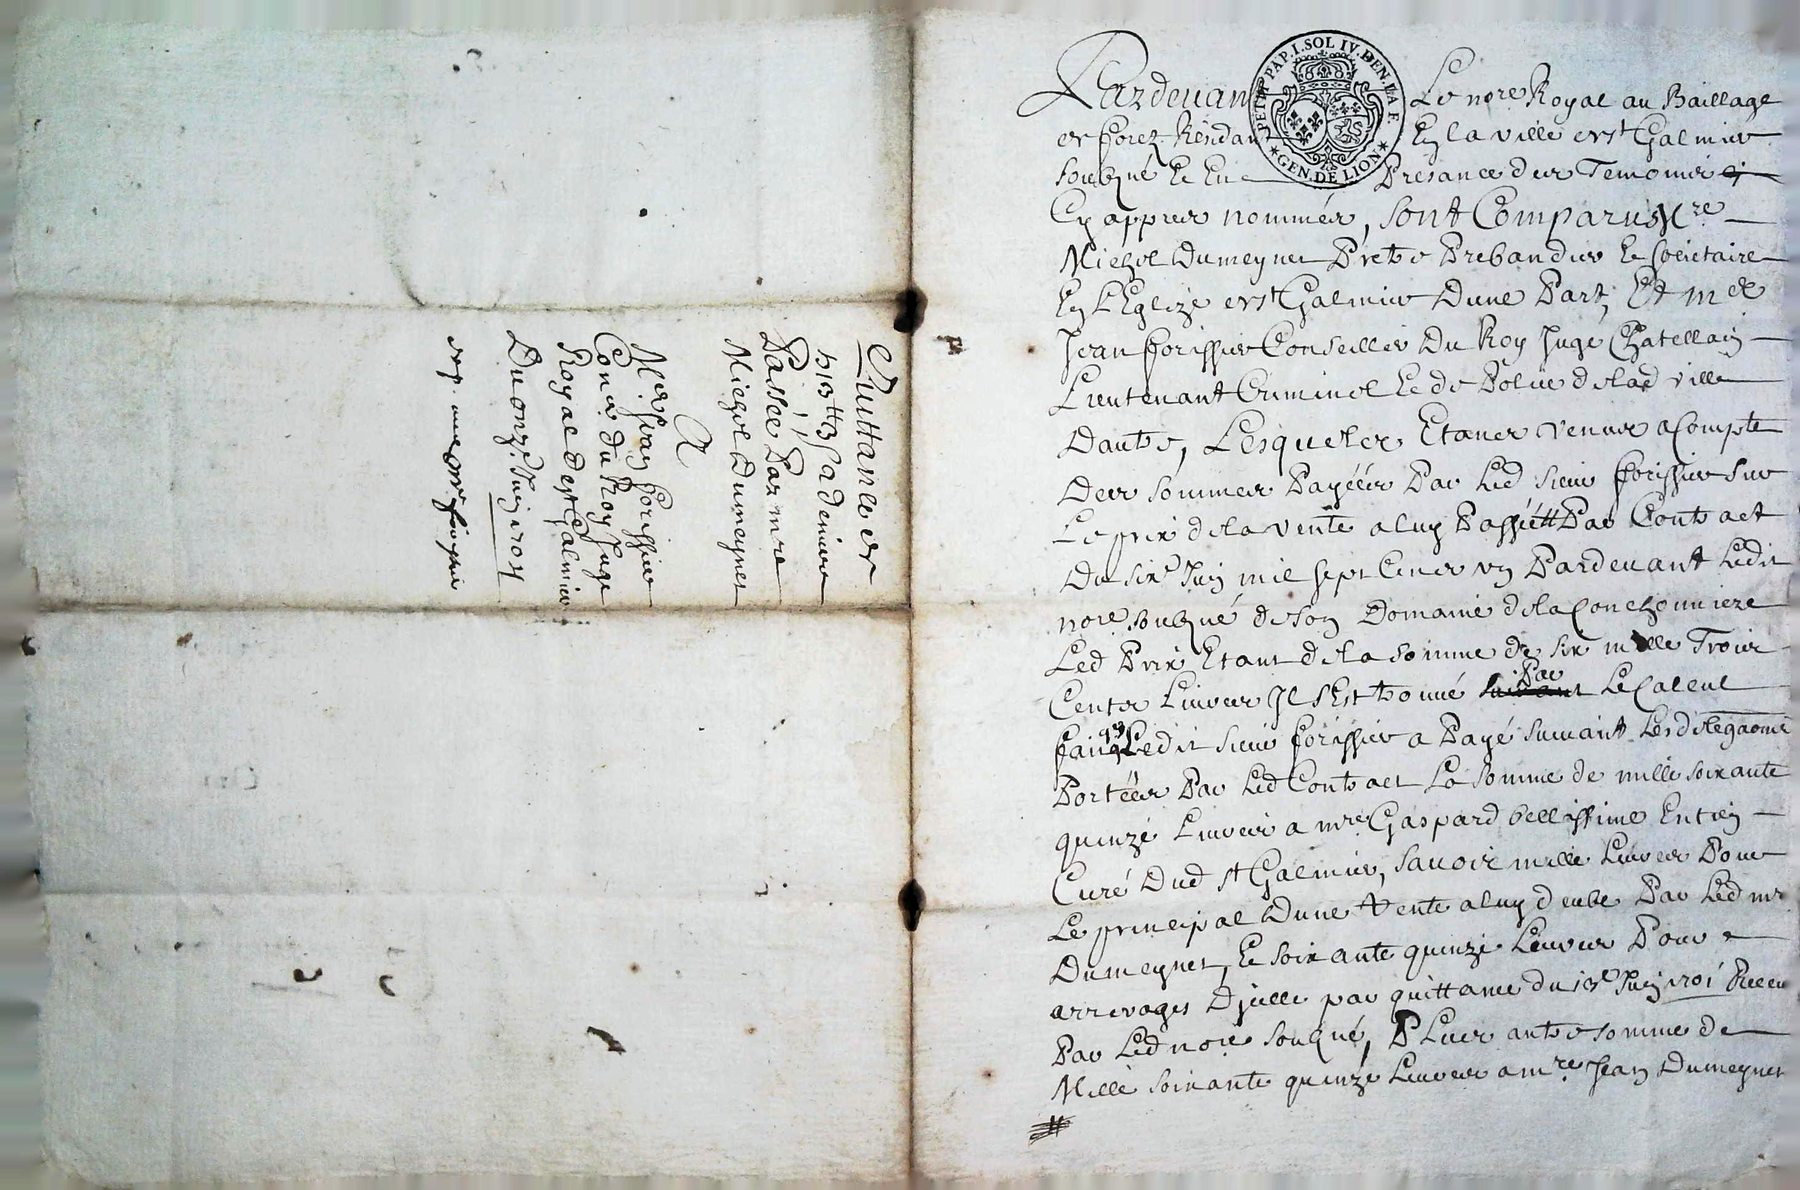 Quittance de
1313 ₶ 3 s a deniers
Passée Par mre
Michel Dumeynet
A
Mr Me Jean Forissier
Conr du Roy Juge
Royal de st Galmier
Du onze Juin 1704
PETIT PAP. I. SOL IV. DEN. LA F.
GEN. DE LION
Pardevant Le nore Royal au Baillage
de forez Residant En la ville de st Galmier
soubzné Et En Presance des Temoins
Cy appres nommés, sont Comparus Mre
Michel Dumeynet Prebtre Prebandier Et Socictaire
En LEglize de st Galmier Dune Part, Et Me
Jean forissier Conseiller Du Roy Juge Chatellain
Lieutenant Criminel Et de Police de lad ville
Dautre, Lesqueles Etances venus a Compte
Des sommes Payéés Par Led sieur forissier sur
Le prix de la vente a luy Passéé Par Contract
Du sixe Juin mil sept Cents un Pardevant Ledit
nore soubzné de son Domaine de la Conchonniere
Led Prix Etant de la somme de six mille Trois
Cents Livres Il sEst trouvé Par Le Calcul
fait q Ledit sieur forissier a Payé suivant Les delegaons
Portéés Par Led Contract La somme de mille soixante
quinze Livres a mre Gaspard bellissime Entien
Curé Dud st Galmier, savoir mille Livres Pour
Le principal Dune Rente a luy deube Par Led mr
Dumeynet, Et soixante quinze Livres Pour
arrerages Djcelle par quittance du 13e Juin 1701 Receu
Par Led nore soubzné, Plus autre somme de
Mille soixante quinze Livres a mre Jean Dumeynet